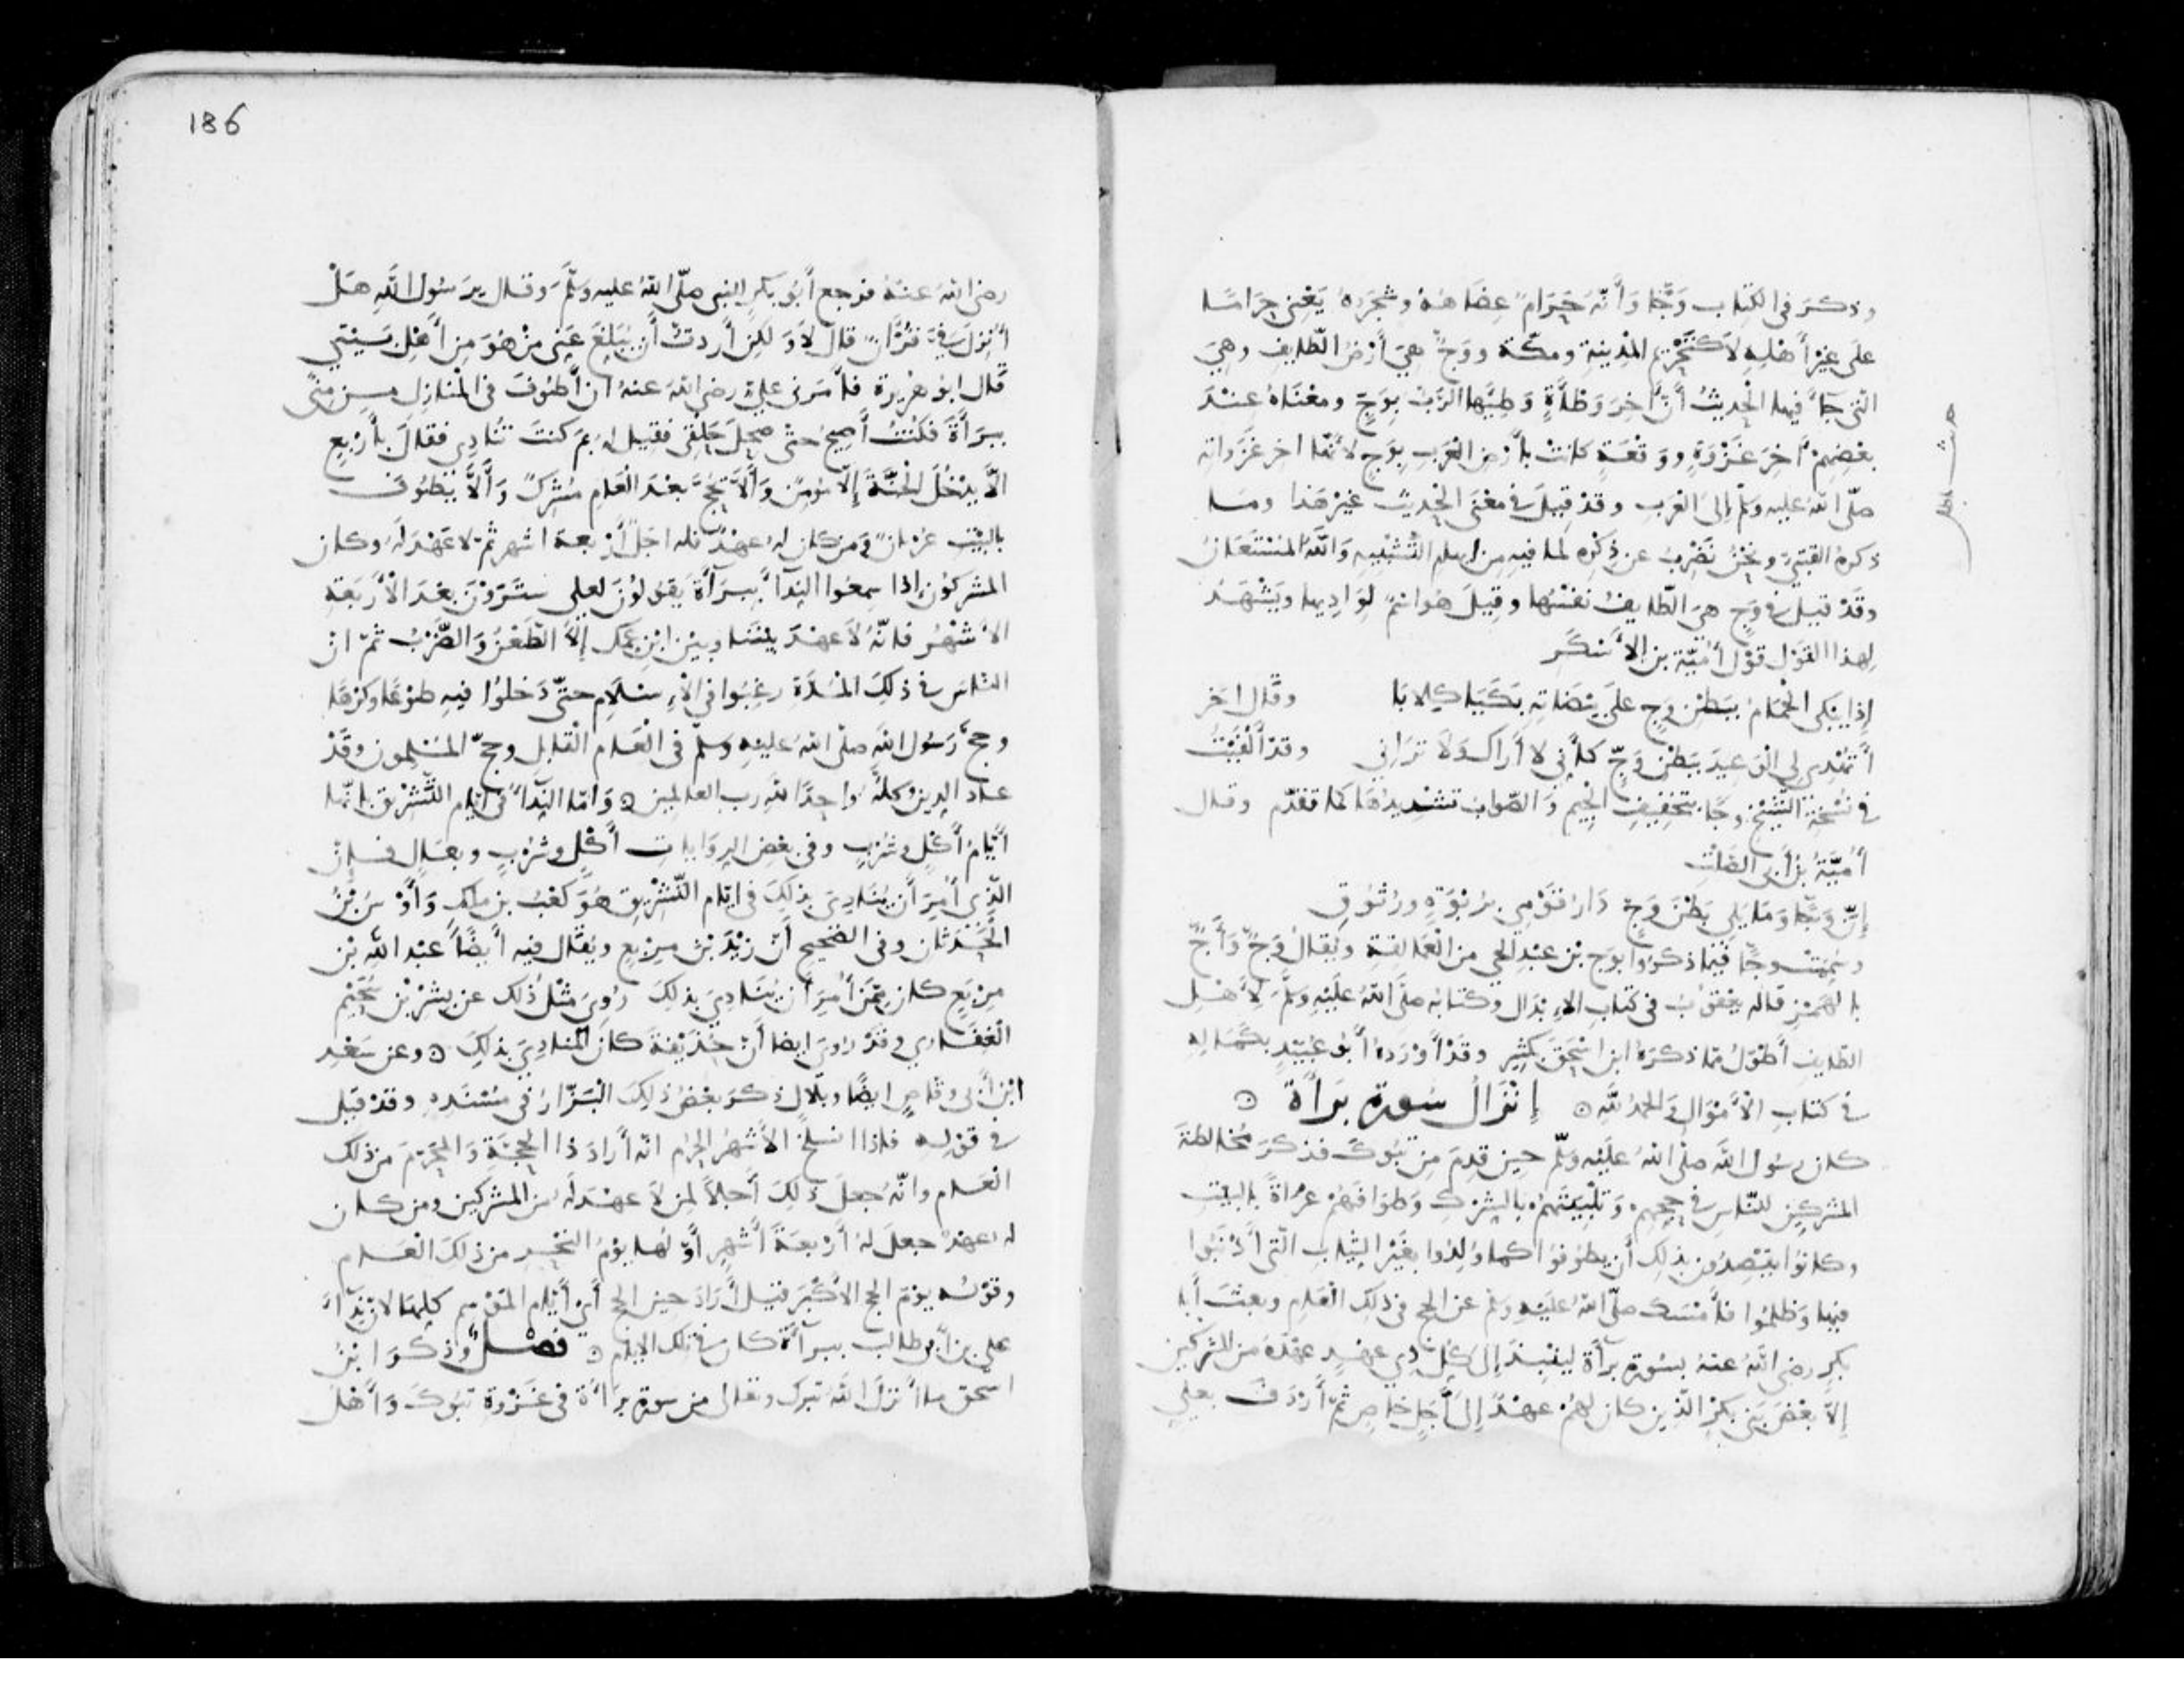 وذكر في الكتاب وَجًّا وَأَنَّهُ حَرَامٌ عِضَاهُهُ وشَجَرُهُ يَعْنِي حَرَامًا
على غَيْرِ أَهْلِهِ كَتَحْرِيمِ المَدِينَةِ ومكّة ووَجٌّ هِيَ أَرْضُ الطّايِفِ وهِيَ
الّتي جاءَ فيها الحَدِيثُ أَنَّ آخِرَ وَطْأَةٍ وَطِئَهَا الرَّبُّ بِوَجٍّ ومَعْنَاهُ عِنْدَ
بَعْضِهِمْ آخِرَ غَزْوَةٍ ووَقْعَةٍ كانَتْ بأَرْضِ العَرَبِ بِوَجٍّ لأَنّها اخر غَزَواتِهِ
صلّى الله عليه وسلم إلى العَرَبِ وقَدْ قِيلَ في مَعْنَى الحَدِيثِ غَيْرُ هَذا ومما
ذكرهُ القتَبِيّ ونَحْنُ نَضْرِبُ عن ذِكْرِهِ لما فيهِ من إيهام التَّشْبِيهِ وَاللَّهُ المُسْتَعَانُ
وقَدْ قيل في وَجٍّ هي الطّايفُ نفسُها وقِيلَ هُوَ اسْمٌ لِوَادِيها ويَشْهَدُ
لهذا القَوْلِ قَوْلُ أُمَيَّةَ بن الأَسْكَرِ
إذا يَبْكي الحَمَامُ بِبَطْنِ وَجٍّ على بَيْضَاتِهِ بَكَيَا كِلابَا وقَالَ آخر
أَتُهْدِي لِي الوَعِيدَ بِبَطْنِ وَجٍّ كَأَنِّي لا أَرَاكَ وَلا تَرَاني وقد أُلْفِيَتْ
في نُسْخَةِ الشَّيْخِ وَجًا بتَخْفِيفِ الجِيمِ وَالصَّوابُ تشْدِيدُهَا كما تقدّم وقال
أُمَيَّةُ بْنُ أَبي الصَّلْتِ
إنَّ وَجًّا وَمَا يَلِي بَطْنَ وَجٍّ دَارُ قَوْمِي بِرَبْوَةٍ ورُتُوقِ
وسُمِّيَتْ وجًّا فيما ذكرُوا بوَجِّ بْنِ عَبْدِ الحي من العَمَالِقَةِ ويُقَالُ وَجٌّ وَأَجٌّ
بالهَمْزِ قاله يَعْقُوبُ في كتَابِ الإِبْدَالِ وكتابُه صلَّى اللهُ عَلَيْهِ وسَلَّمَ لأَهْلِ
الطّايِفِ أَطْوَلُ مِمّا ذكرَهُ ابن اسْحَقَ بكَثِيرٍ وقَدْ أَوْرَدَهُ أَبُو عُبَيْدٍ بكَمَالِهِ
في كتَابِ الأَمْوَالِ وَالحَمْدُ لِلَّهِ إنْزَالُ سُورَةِ بَرَأَة
كان رسُولُ اللّهِ صلّى اللهُ عَلَيْهِ وسلّم حينَ قَدِمَ مِن تَبُوكَ فذكرَ مُخَالَطَةَ
المشركين للنّاسِ في حَجِّهِمْ وَتَلْبِيَتَهُمْ بالشِّرْكِ وَطَوَافَهُمْ عُرَاةً بالبَيْتِ
وكانُوا يَقْصِدُونَ بذلك أَنْ يطُوفُوا كما وُلِدُوا بغَيْرِ الثِّيَابِ الّتي أَذْنَبُوا
فيها وَظَلَمُوا فأَمْسَكَ صلّى اللهُ عَلَيْهِ وسلم عن الحج في ذلك العَامِ وبعث أَبا
بكرٍ رضي اللهُ عنهُ بسُورَةِ برأَة ليَنْبِذَ إلى كُلِّ ذي عَهْدٍ عَهْدَهُ من المشركين
إلاّ بَعْضَ بَنِي بَكْرٍ الَّذِين كان لهُمْ عَهْدٌ إلى أَجَلٍ خَاصٍ ثُمَّ أَرْدَفَ بعلي
186
رضي اللهُ عنهُ فرجع أَبُو بكرٍ للنبي صلّى اللهُ عليه وسَلَّمَ وقال يرَسُولَ اللَّهِ هَلْ
أُنْزِلَ فِيَّ قُرْآنٌ قالَ لاَ وَلكِنْ أَردتُ أَن يُبَلِّغَ عَنِّي مَنْ هُوَ مِن أَهْلِ بَيْتِي
قَالَ ابو هُرَيرة فأَمَرني عليٌّ رضي اللهُ عنهُ ان أَطُوفَ في المنَازِلِ من مِنًى
بِبَرَأَة فكُنْتُ أَصِيحُ حَتَّى صَحِلَ حَلْقِي فقِيلَ لَهُ بِمَ كنتَ تُنَادِي فقَالَ بأَرْبَعٍ
أَلاَّ يَدْخُلَ الجَنَّةَ إلاّ مُؤمِنٌ وَأَلاَّ يَحُجَّ بَعْدَ العَامِ مُشْرِكٌ وَأَلاَّ يَطُوفَ
بالبَيْتِ عُرْيانٌ وَمَن كان لهُ عهْدٌ فله أَجَلُ أَرْبعة اشهر ثُمَّ لا عَهْدَ لَهُ وكان
المشركُونَ إذا سَمِعُوا النِّدَآءَ بِبرَآءَة يَقُولُونَ لعلي سَتَرَوْنَ بَعْدَ الأَرْبَعَةِ
الأَشْهُرِ فانّهُ لا عَهْدَ بيْنَنا وبَيْنَ ابْنِ عَمِّك إلاّ الطَّعْنُ وَالضَّرْبُ ثمّ ان
النّاسَ في ذلِكَ المُدَّةِ رغِبُوا في الإِسْلاَمِ حتّى دَخلُوا فيهِ طَوْعًا وكَرْهًا
وحجَّ رَسُولُ اللهِ صلّى اللهُ عليهِ وسلّم في العَامِ القَابِلِ وحجَّ المُسْلِمون وقَدْ
عَادَ الدِينُ كلُّهُ وَاحِدًا لله رب العالمين وَأَمّا النِّدَآءُ في أيّامِ التَّشْرِيقِ بانّها
أَيَّامُ أَكْلٍ وشُرْبٍ وفي بَعْضِ الرِوَايات أَكْلٍ وشُرْبٍ وبِعَالٍ فإِنّ
الَّذِي أُمِرَ أَنْ يُنَادِيَ بذلِكَ في ايّامِ التَّشْرِيقِ هُوَ كَعْبُ بن مالك وَأَوْسُ بْنُ
الحَدَثَان وفي الصّحِيحِ أَنّ زَيْدَ بْنَ مِرْبَعٍ ويُقَال فيه أَيضًا عَبْدُ اللهِ بْنُ
مِرْبَعٍ كان مِمَّنْ أُمِرَ أَن يُنَادِيَ بذلكَ ورُوِيَ مثْلُ ذلك عن بِشْرِ بْنِ سُحَيْمٍ
الغِفَاري وقَدْ رُوِيَ ايضا أَنّ حُذَيْفَةَ كانَ المُنَادِيَ بذلِكَ وعن سَعْدِ
ابْنِ أَبي وقّاصٍ ايضًا وبلالٍ ذكر بَعْضُ ذلِكَ البَزّارُ في مُسْنَدِهِ وقد قيل
في قَوْلِهِ فإذا انسَلَخَ الأَشْهُرُ الحُرُم انّه أَرادَ ذا الحِجَّةِ وَالمُحَرَّم من ذلك
العَامِ وانّهُ جعلَ ذلِكَ أَجَلاً لِمَنْ لاَ عَهْدَ لَهُ من المشركين ومن كان
له عَهْدٌ جعلَ لَهُ أَرْبعَةَ أَشْهُرٍ أَوّلُها يَوْمُ النَّحْرِ من ذلك العَامِ
وقَوْلُه يوْمَ الحج الأَكْبَرِ قيلَ أَرَادَ حِينَ الحج أَيْ أَيّامَ المَوْسِمِ كلِّها لأَنّ نِدَآءَ
علي بن أَبي طالب ببرآءة كان في تلك الايام فصْلٌ وَذكَرَ ابْنُ
اسْحَقَ ما أَنْزَلَ اللهُ تبرك وتعالى من سورة برآءة في غَزْوَةِ تبُوكَ وَأَهْلُ